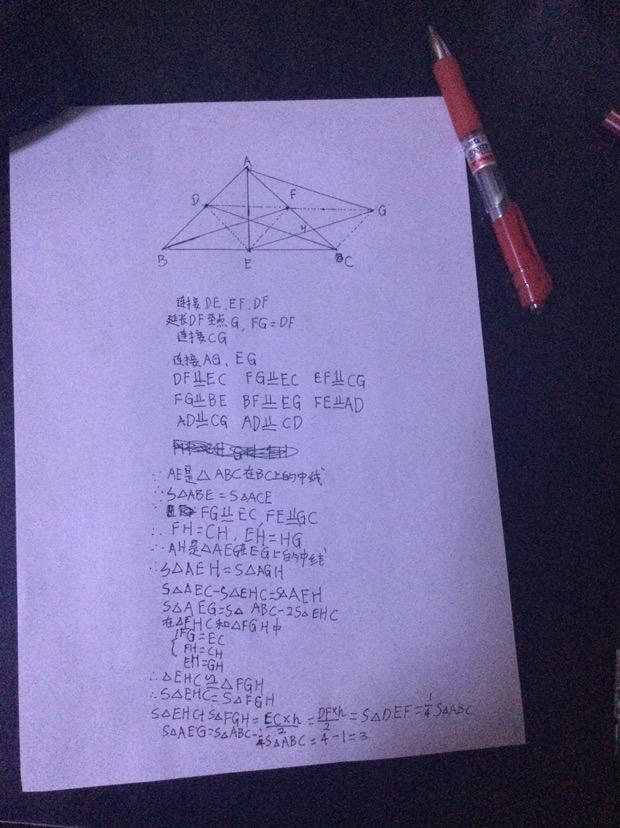 A
D
F
G
H
B
E
C
连接 DE、EF、DF
延长DF至点G, FG=DF
连接CG
连接AG、EG
DF⫫EC FG⫫EC EF⫫CG
FG⫫BE BF⫫EG FE⫫AD
AD⫫CG AD⫫CD
∵AE是△ABC在BC上的中线
∴S△ABE=S△ACE
FG⫫EC,FE⫫GC
∴FH=CH,EH=HG
∴AH是△AEG在EG上的中线
∴S△AEH=S△AGH
S△AEC-S△EHC=S△AEH
S△AEG=S△ABC-2S△EHC
在△EHC和△FGH中
{FG=EC
FH=CH
EH=GH
∴△EHC≌△FGH
∴S△EHC=S△FGH
S△EHC+S△FGH=EC×h/2=DF×h/2=S△DEF=1/4S△ABC
S△AEG=S△ABC-1/4S△ABC=4-1=3